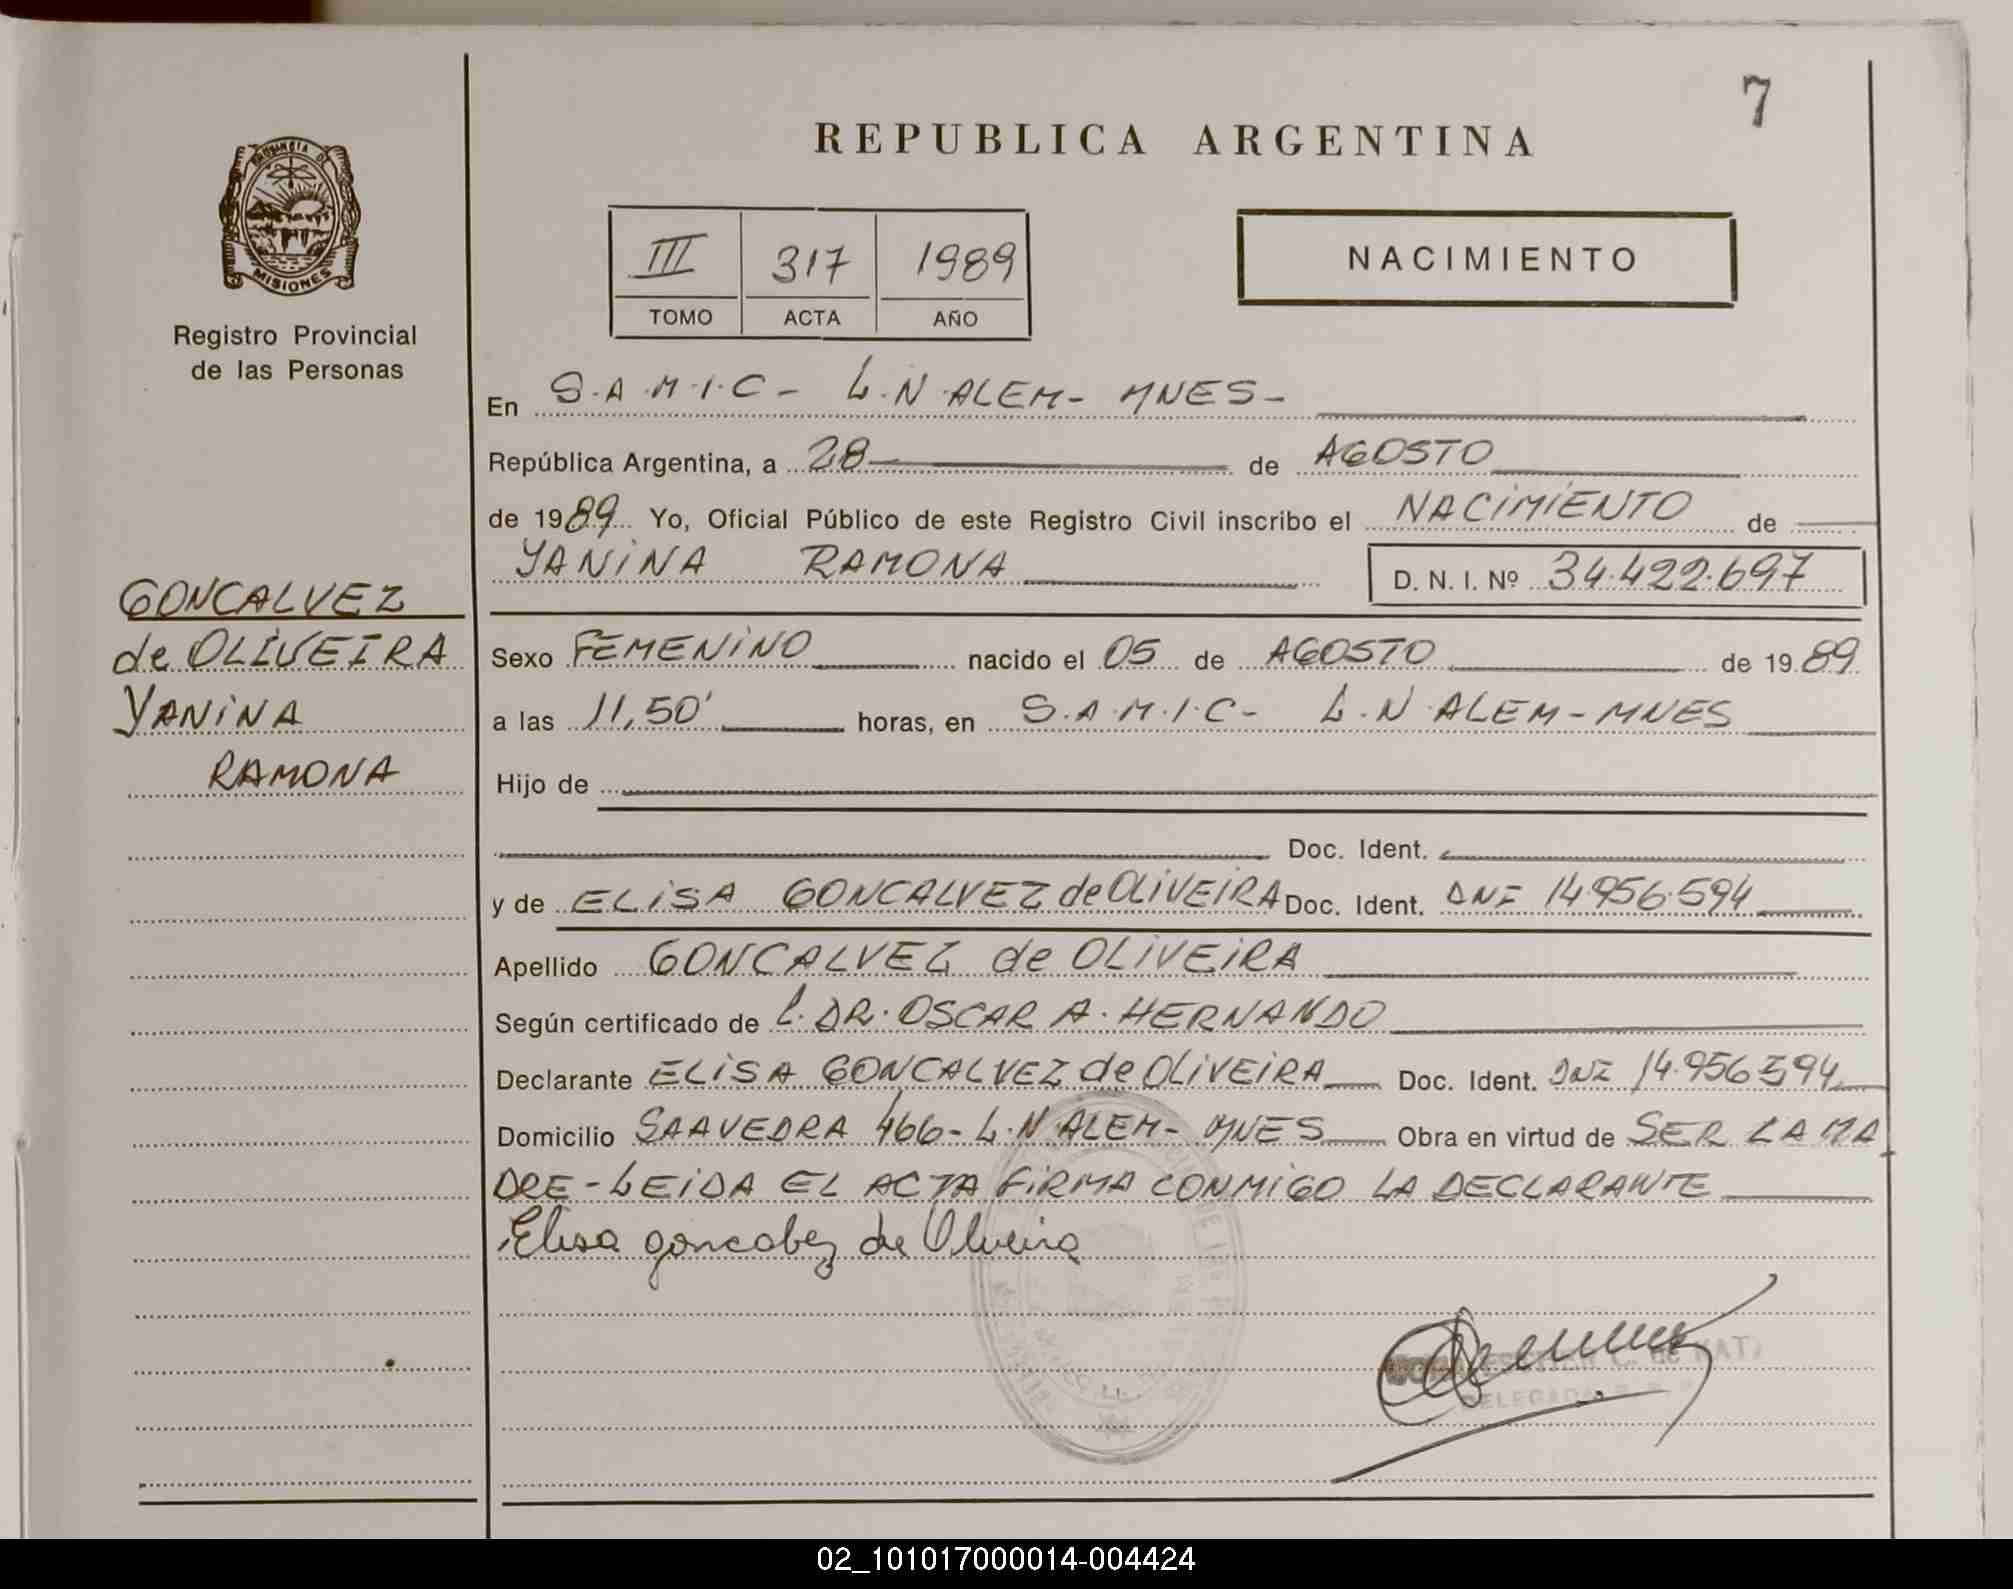 7
REPUBLICA ARGENTINA
PROVINCIA DE
MISIONES
Registro Provincial
de las Personas
III 317 1989
TOMO ACTA AÑO
NACIMIENTO
En S.A.M.I.C- L.N.ALEM- MNES-
República Argentina, a 28 de AGOSTO
de 1989 Yo, Oficial Público de este Registro Civil inscribo el NACIMIENTO de
YANINA RAMONA D. N. I. Nº 34.422.697
GONCALVEZ
de OLIVEIRA
YANINA
RAMONA
Sexo FEMENINO nacido el 05 de AGOSTO de 1989
a las 11,50' horas, en S.A.M.I.C- L.N ALEM-MNES
Hijo de
Doc. Ident.
y de ELISA GONCALVEZ de OLIVEIRA Doc. Ident. DNI 14.956.594
Apellido GONCALVEZ de OLIVEIRA
Según certificado de l. DR. OSCAR A. HERNANDO
Declarante ELISA GONCALVEZ de OLIVEIRA Doc. Ident. DNI 14.956594
Domicilio SAAVEDRA 466-L.N.ALEM- MNES Obra en virtud de SER LA MA
DRE-LEIDA EL ACTA FIRMA CONMIGO LA DECLARANTE
Elisa goncabez de Oliveira
DELEGADA
02_101017000014-004424